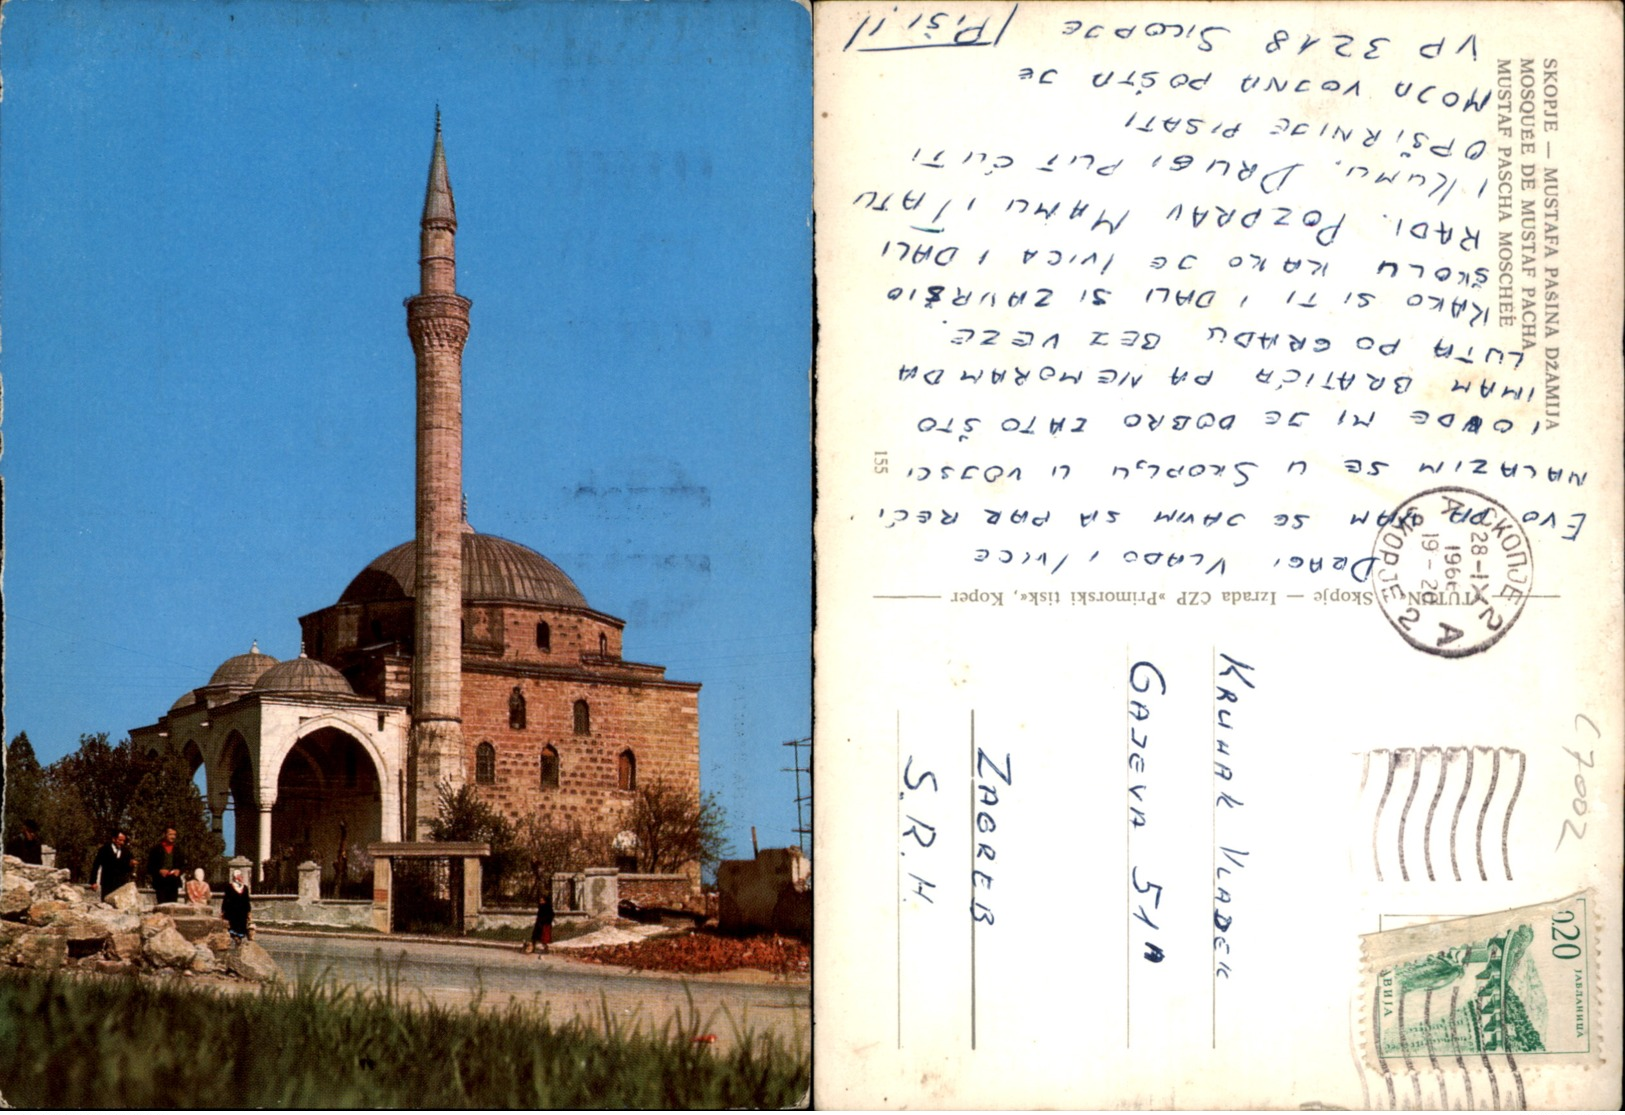 SKOPJE — MUSTAFA PAŠINA DŽAMIJA
MOSQUÉE DE MUSTAF PACHA
MUSTAF PASCHA MOSCHEÉ
DRAGI VLADO I IVICE
EVO DA VAM SE JAVIM SA PAR REĆI
NALAZIM SE U SKOPLJU U VOJSCI
I OVDE MI JE DOBRO ZATO ŠTO
IMAM BRATIĆA PA NEMORAM DA
LUTA PO GRADU BEZ VEZE.
KAKO SI TI I DALI SI ZAVRŠIO
ŠKOLU KAKO JE IVICA I DALI
RADI. POZDRAV MAMU I TATU
I KUMU. DRUGI PUT ĆU TI
OPŠIRNIJE PISATI
MOJA VOJNA POŠTA JE
VP 3218 SKOPJE
(PIŠI!)
155
»TUTUN« Skopje — Izrada ČZP »Primorski tisk«, Koper
СКОПЈЕ 2
28-IX
196
19-20
SKOPJE 2
A A
KRUHAK VLADEK
GAJEVA 51A
ZAGREB
S.R.H.
C7002
0,20
ЈАБЛАНИЦА
ВИЈА